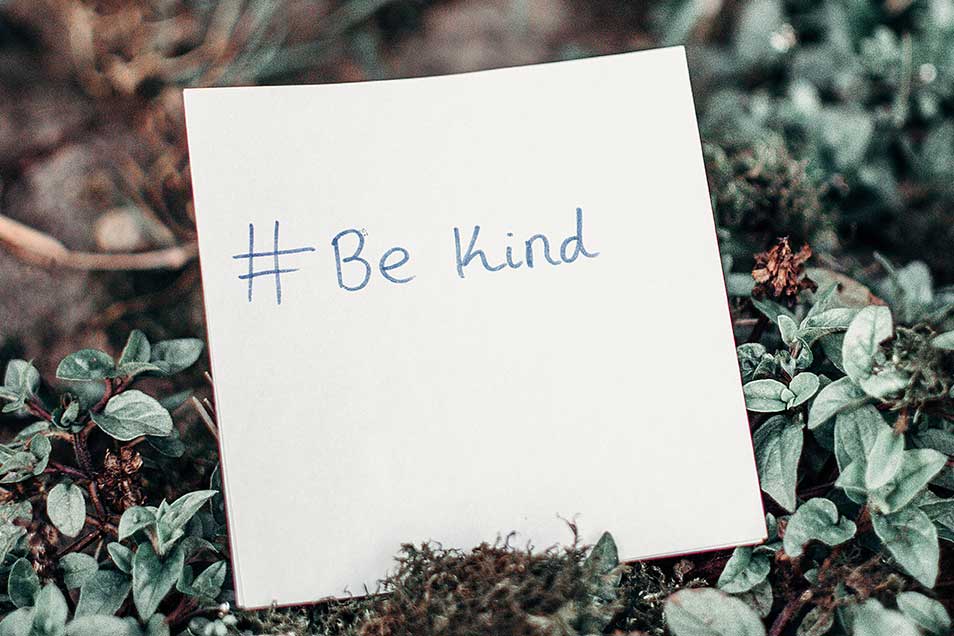 # Be Kind